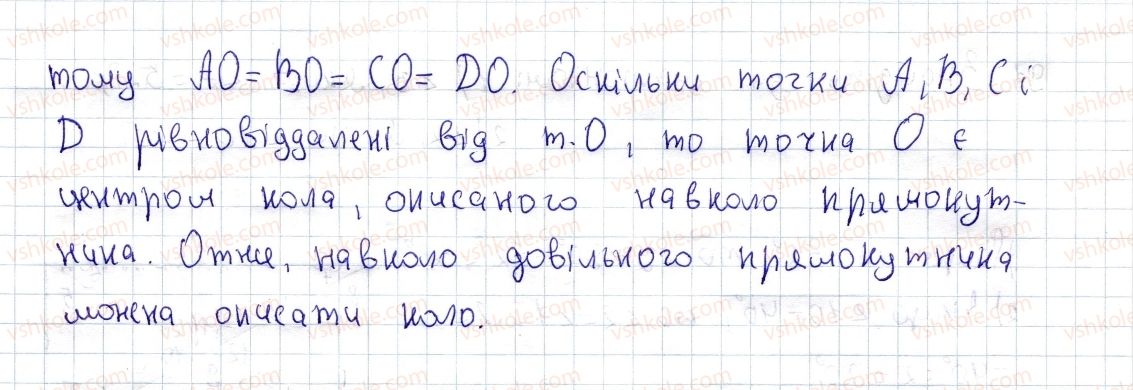 тому AO = BO = CO = DO. Оскільки точки A, B, C і
D рівновіддалені від т. O, то точка O є
центром кола, описаного навколо прямокут-
ника. Отже, навколо довільного прямокутника
можна описати коло.